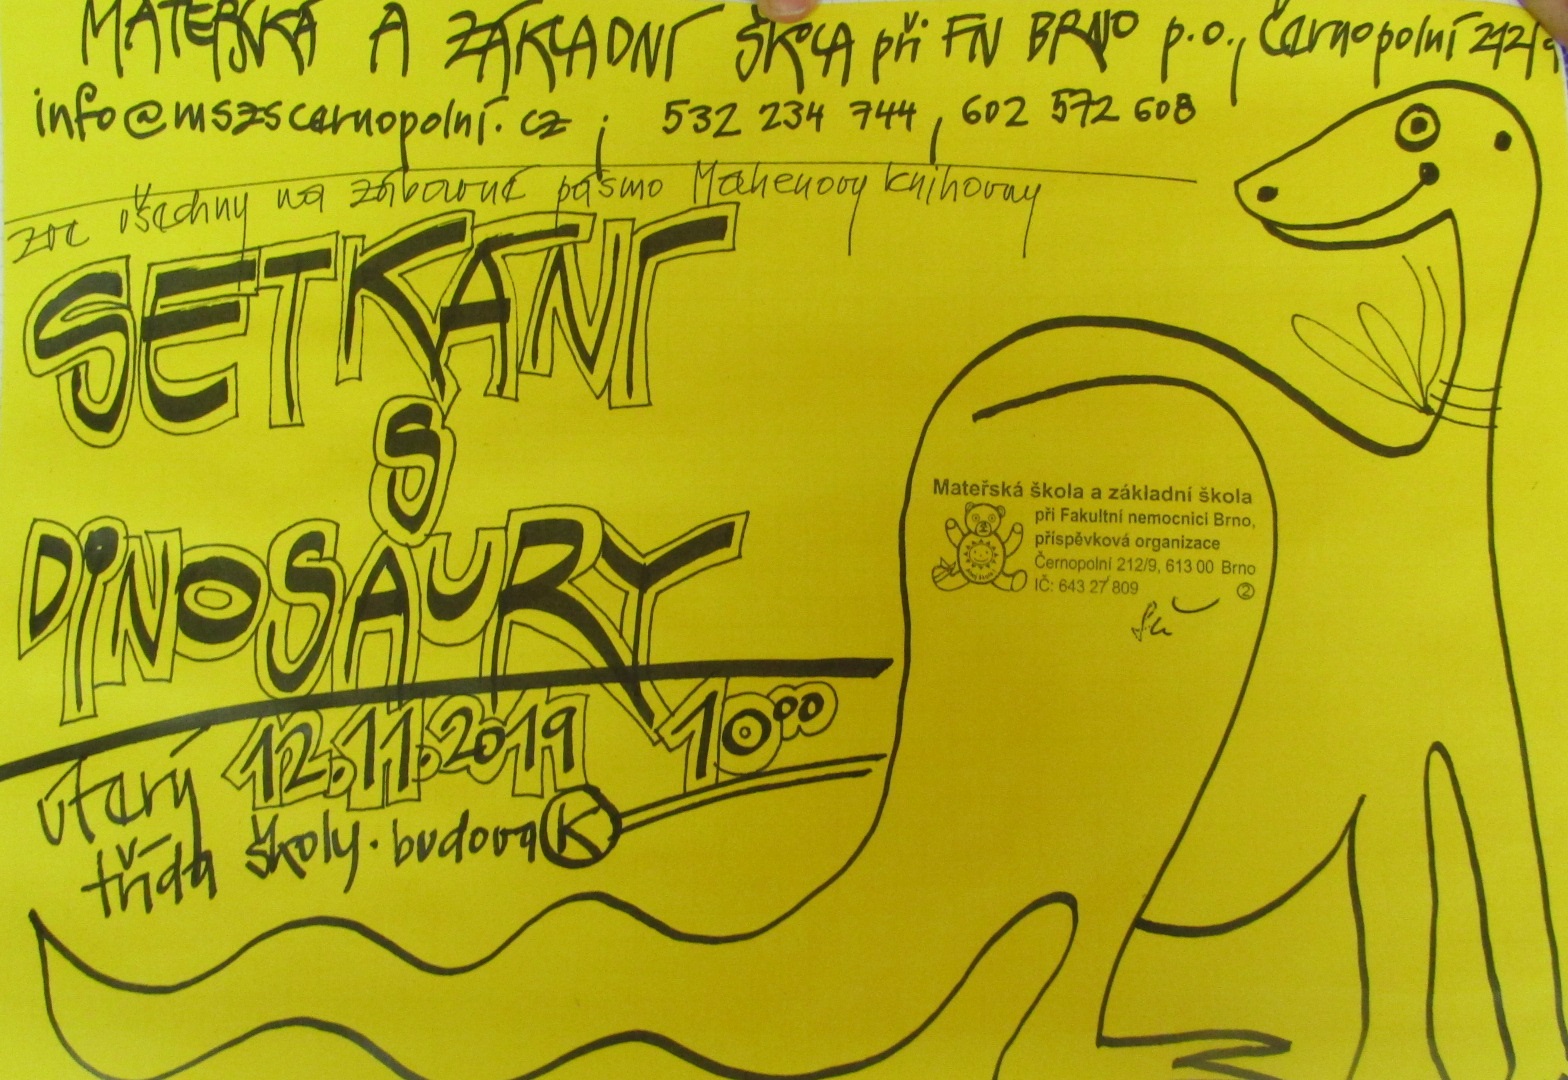 MATEŘSKÁ A ZÁKLADNÍ ŠKOLA při FN BRNO p.o., Černopolní 212/9
info@mszscernopolní.cz ; 532 234 744, 602 572 608
zve všechny na zábavné pásmo Mahenovy knihovny
SETKÁNÍ
S
DINOSAURY
úterý 12.11.2019 10⁰⁰
třída školy. budova K
Mateřská škola a základní škola
při Fakultní nemocnici Brno,
příspěvková organizace
Černopolní 212/9, 613 00 Brno
IČ: 643 27 809 2